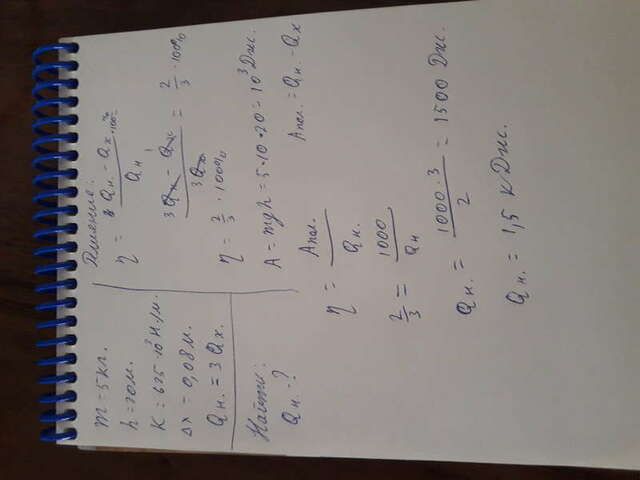 m = 5 кг.
h = 20 м.
K = 625·10³ Н/м.
Δx = 0,08 м.
Qн. = 3Qх.
Найти:
Qн. - ?
Решение:
η = (Qн. - Qх)/Qн · 100%
(3Qх - Qх)/3Qх = 2/3 · 100%
η = 2/3 · 100%
A = mgh = 5·10·20 = 10³ Дж.
η = Aпол./Qн. Aпол. = Qн. - Qх
2/3 = 1000/Qн
Qн. = 1000·3/2 = 1500 Дж.
Qн. = 1,5 кДж.